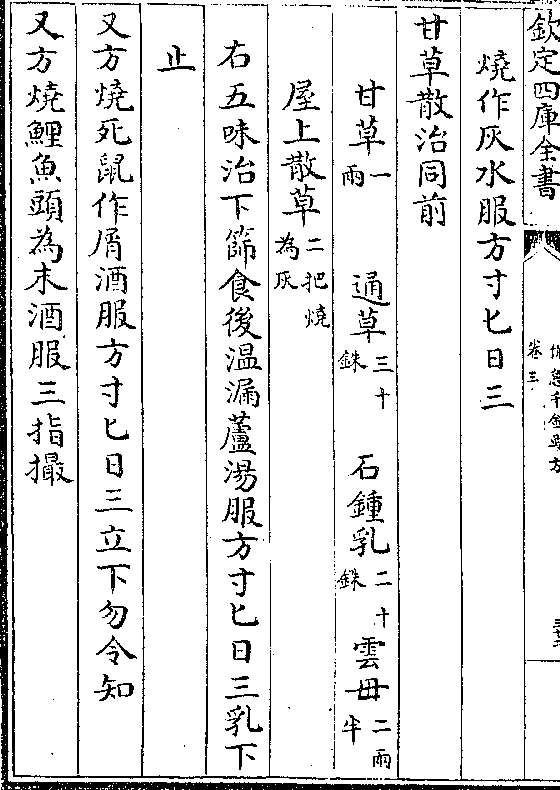 欽定四庫全書
備急千金要方
卷三
燒作灰水服方寸匕日三
甘草散治同前
甘草一兩 通草三十銖 石鍾乳二十銖 雲毋二兩半
屋上散草二把燒為灰
右五味治下篩食後温漏蘆湯服方寸匕日三乳下
止
又方燒死鼠作屑酒服方寸匕日三立下勿令知
又方燒鯉魚頭為末酒服三指撮